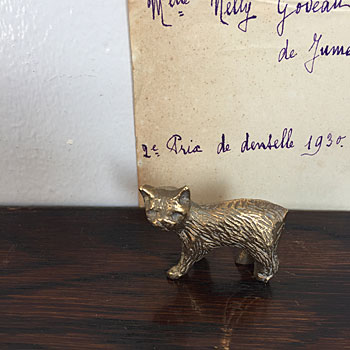 Melle Nelly Godeau
de Jume
2e Prix de dentelle 1930.